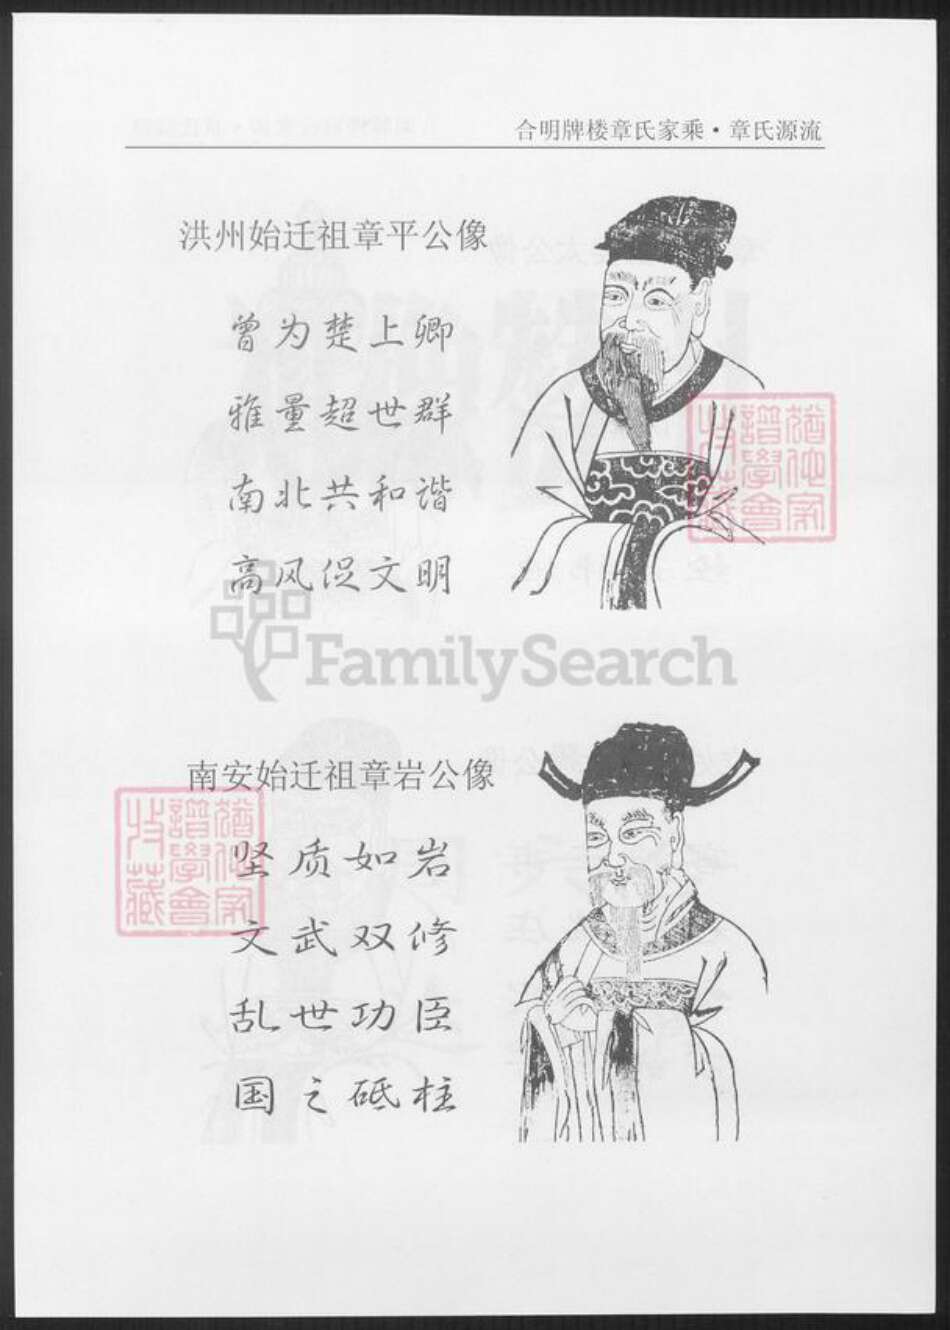 合明牌楼章氏家乘·章氏源流
洪州始迁祖章平公像
曾为楚上卿
雅量超世群
南北共和谐
高风促文明
FamilySearch
南安始迁祖章岩公像
坚质如岩
文武双修
乱世功臣
国之砥柱